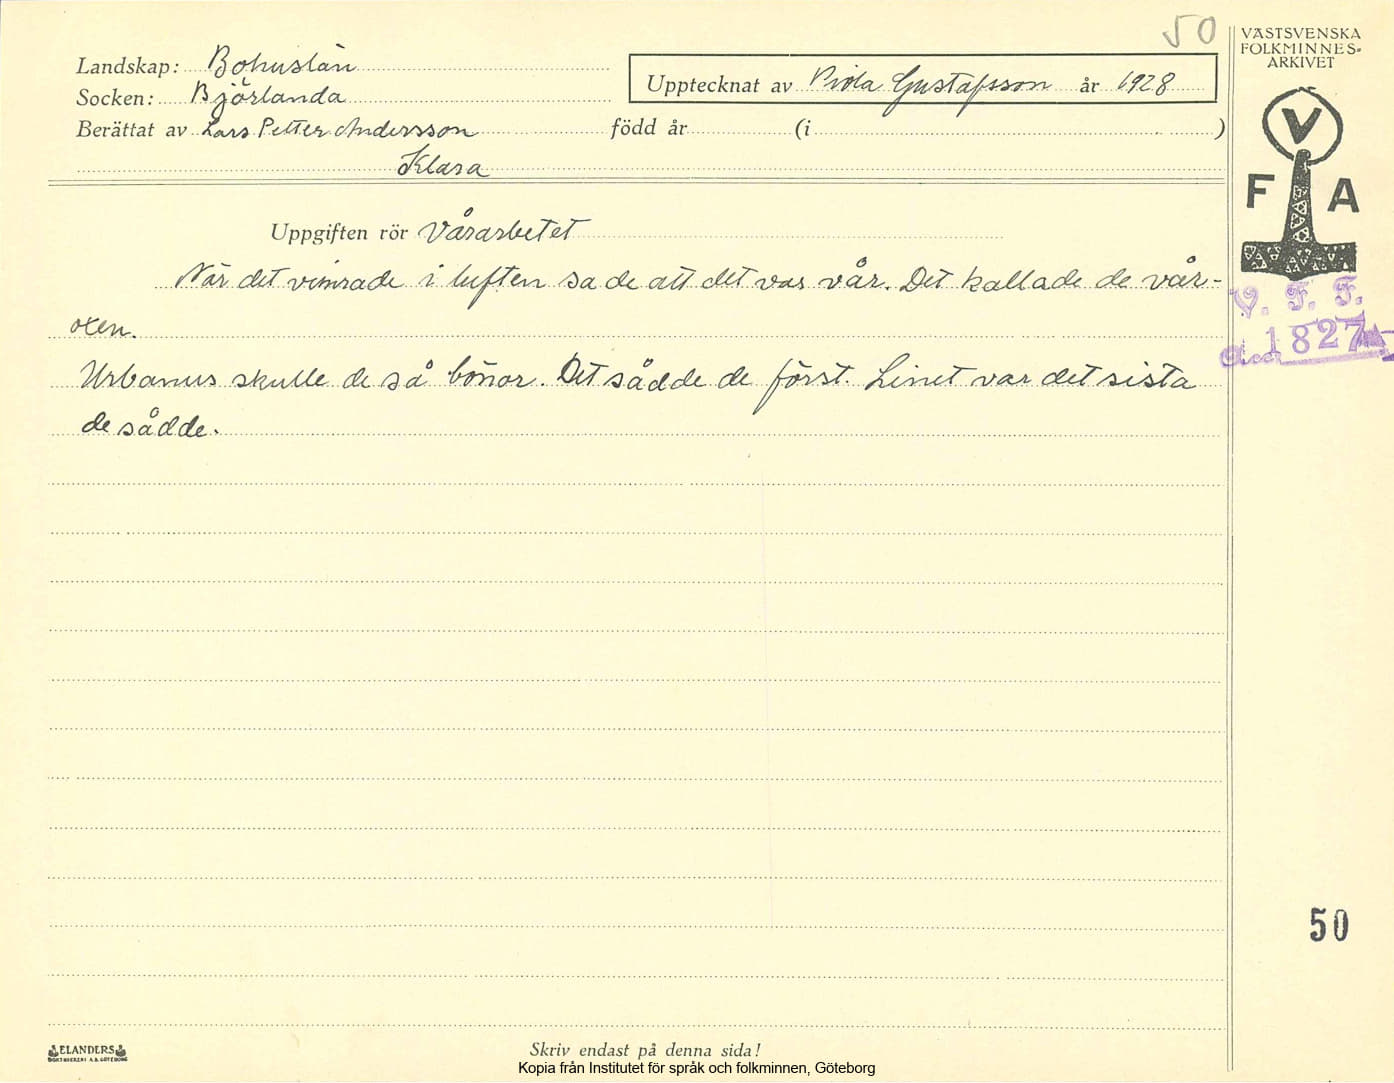 50
VÄSTSVENSKA
FOLKMINNES-
ARKIVET
Landskap: Bohuslän
Socken: Björlanda
Upptecknat av Viola Gustafsson år 1928
Berättat av Lars Petter Andersson född år (i )
Klara
V
F A
Uppgiften rör Vårarbetet
När det vimrade i luften sa de att det var vår. Det kallade de vår-
oxen.
V. F. F.
1827
Urbanus skulle de så bönor. Det sådde de först. Linet var det sista
de sådde.
50
ELANDERS
Skriv endast på denna sida!
Kopia från Institutet för språk och folkminnen, Göteborg